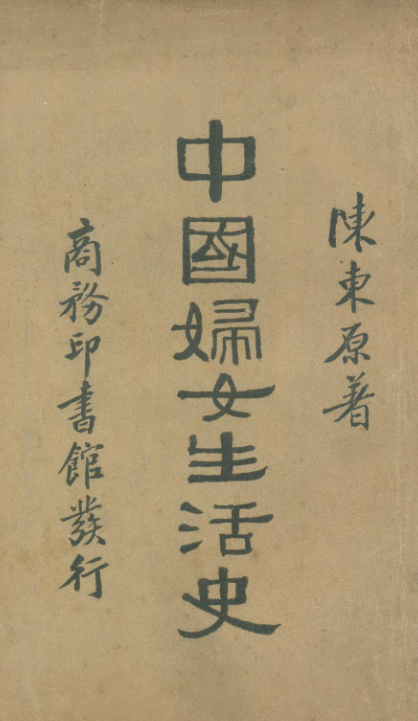 陳東原著
中國婦女生活史
商務印書館發行